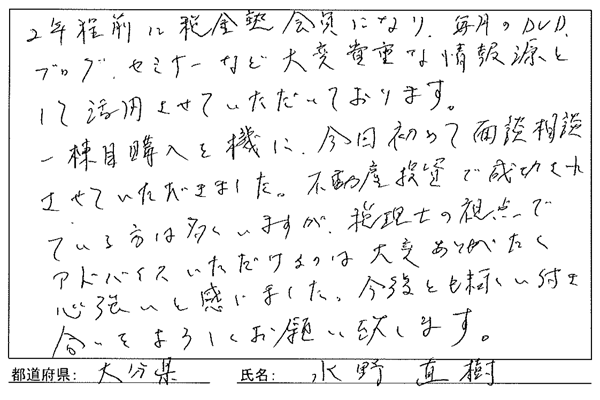 2年程前に税金塾会員になり、毎月のDVD、
ブログ、セミナーなど大変貴重な情報源と
して活用させていただいております。
一棟目購入を機に、今回初めて面談相談
させていただきました。不動産投資で成功され
ている方は多くいますが、税理士の視点で
アドバイスいただけるのは大変ありがたく
心強いと感じました。今後とも末長い付き
合いをよろしくお願い致します。
都道府県： 大分県 氏名： 水野 直樹